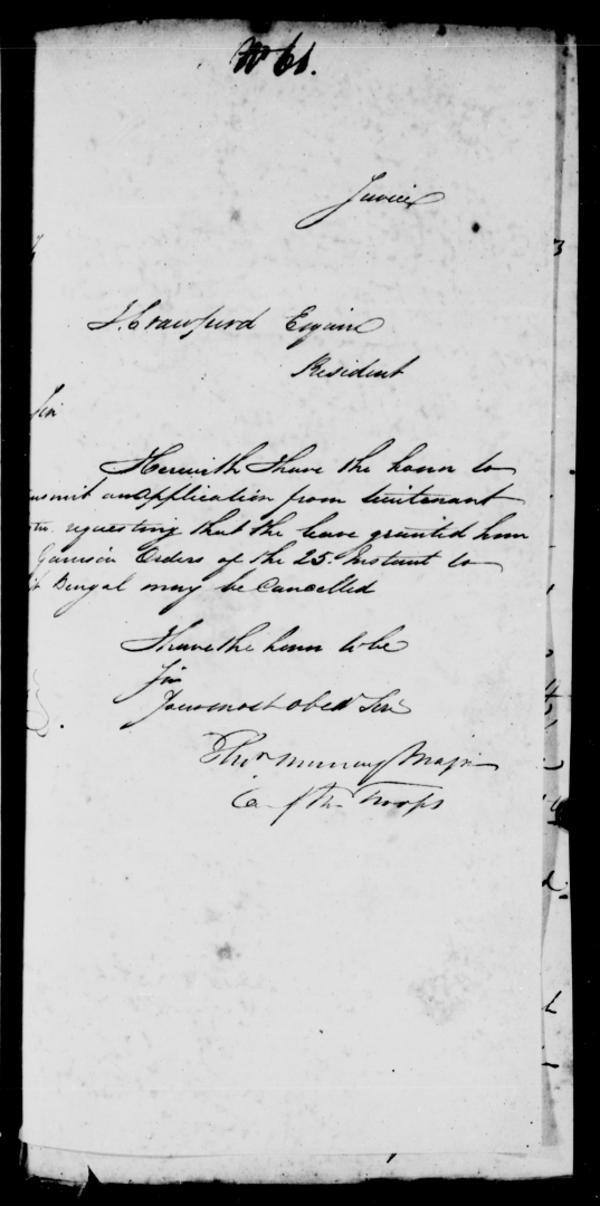 No 61.
Service
J. Crawfurd Esquire
Resident
Sir
Herewith I have the honor to
nsmit an application from Lieutenant
requesting that the leave granted him
Garrison Orders of the 25th Instant to
it Bengal may be Cancelled
I have the honor to be
Sir
Your most obed Serv
Thos Murray Major
Co of the Troops